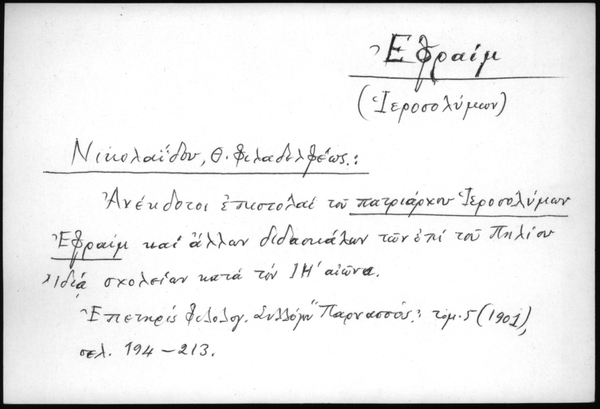 Ἐφραίμ
(Ἱεροσολύμων)
Νικολαΐδου, Θ. Φιλαδελφέως:
Ἀνέκδοτοι ἐπιστολαί τοῦ πατριάρχου Ἱεροσολύμων
Ἐφραίμ καί ἄλλων διδασκάλων τῶν ἐπί τοῦ Πηλίου
σχολείων κατά τόν ΙΗ' αἰῶνα.
Ἐπετηρίς Φιλολογ. Συλλόγου "Παρνασσός": τόμ. 5 (1901),
σελ. 194-213.